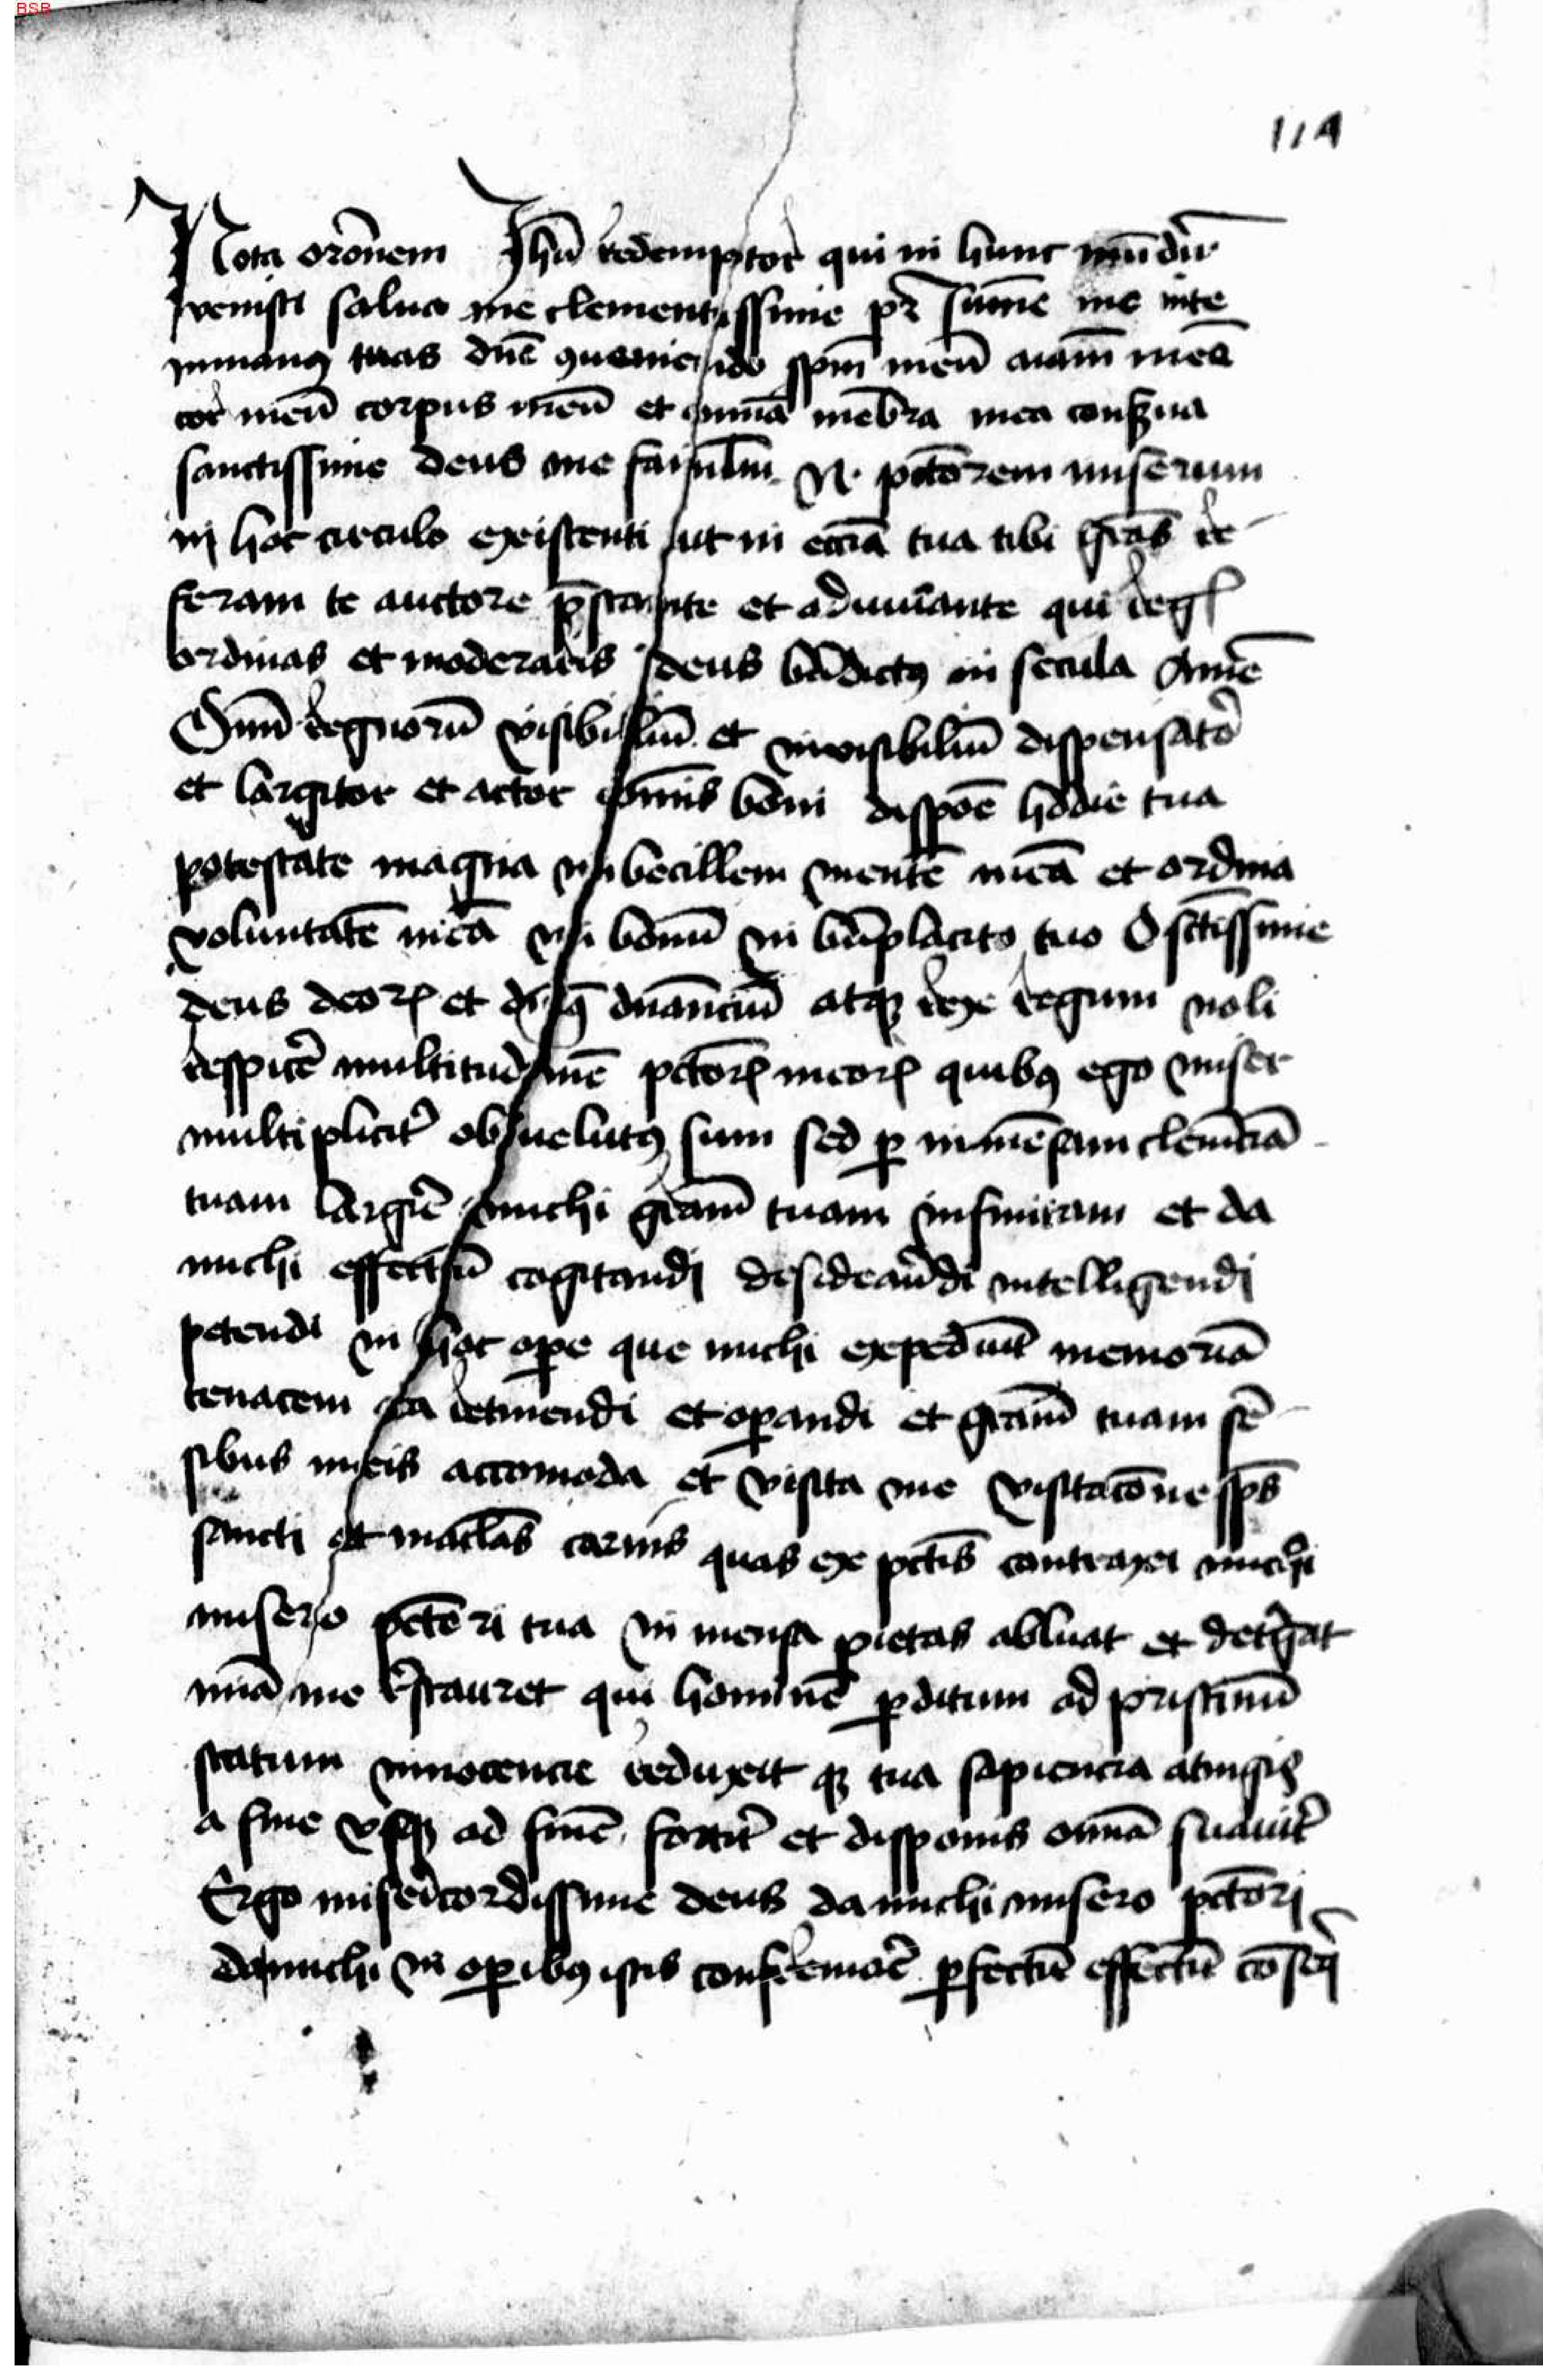 BSB
114
Nota oronem Jhu redemptor qui in hunc mundu
venisti salua me clementissime pr sume me inte
inmanus tuas dne spm meu aiam mea
cor meu corpus meu et omnia mebra mea conserua
sanctissime deus me famulum N. pctorem miserum
in hoc circulo existenti ut in eccia tua tibi gras re
feram te auctore prestante et adiuuante qui regis
ordinas et moderaris deus bndictus in secula Ame
Omniu regnoru visibiliu et invisibiliu dispensator
et largitor et actor omnis boni dispone hodie tua
potestate magna imbecillem mente mea et ordina
voluntate mea in bonu in bnplacito tuo O sctissime
deus deorum et dnancium atque rex regum noli
respicere multitudine pctorum meorum quibus ego miser
multipliciter obuelutus sum sed per inmesam clemcia
tuam largire michi graam tuam infinitam et da
michi effectu cogitandi desiderandi intelligendi
petendi in hoc opere que michi expediunt memoria
tenacem da retinendi et operandi et graam tuam se
sibus meis accomoda et visita me visitacone sps
sancti et maclas carnis quas ex pctis contraxi michi
misero pctori tua in mensa pietas abluat et detergat
me restauret qui homine perditum ad pristinu
statum innocencie reduxit que tua sapiencia atingis
a fine usque ad fine fortiter et disponis omnia suauiter
Ergo misericordissime deus da michi misero pctori
da michi in operibus istis perfectu effectu coseq